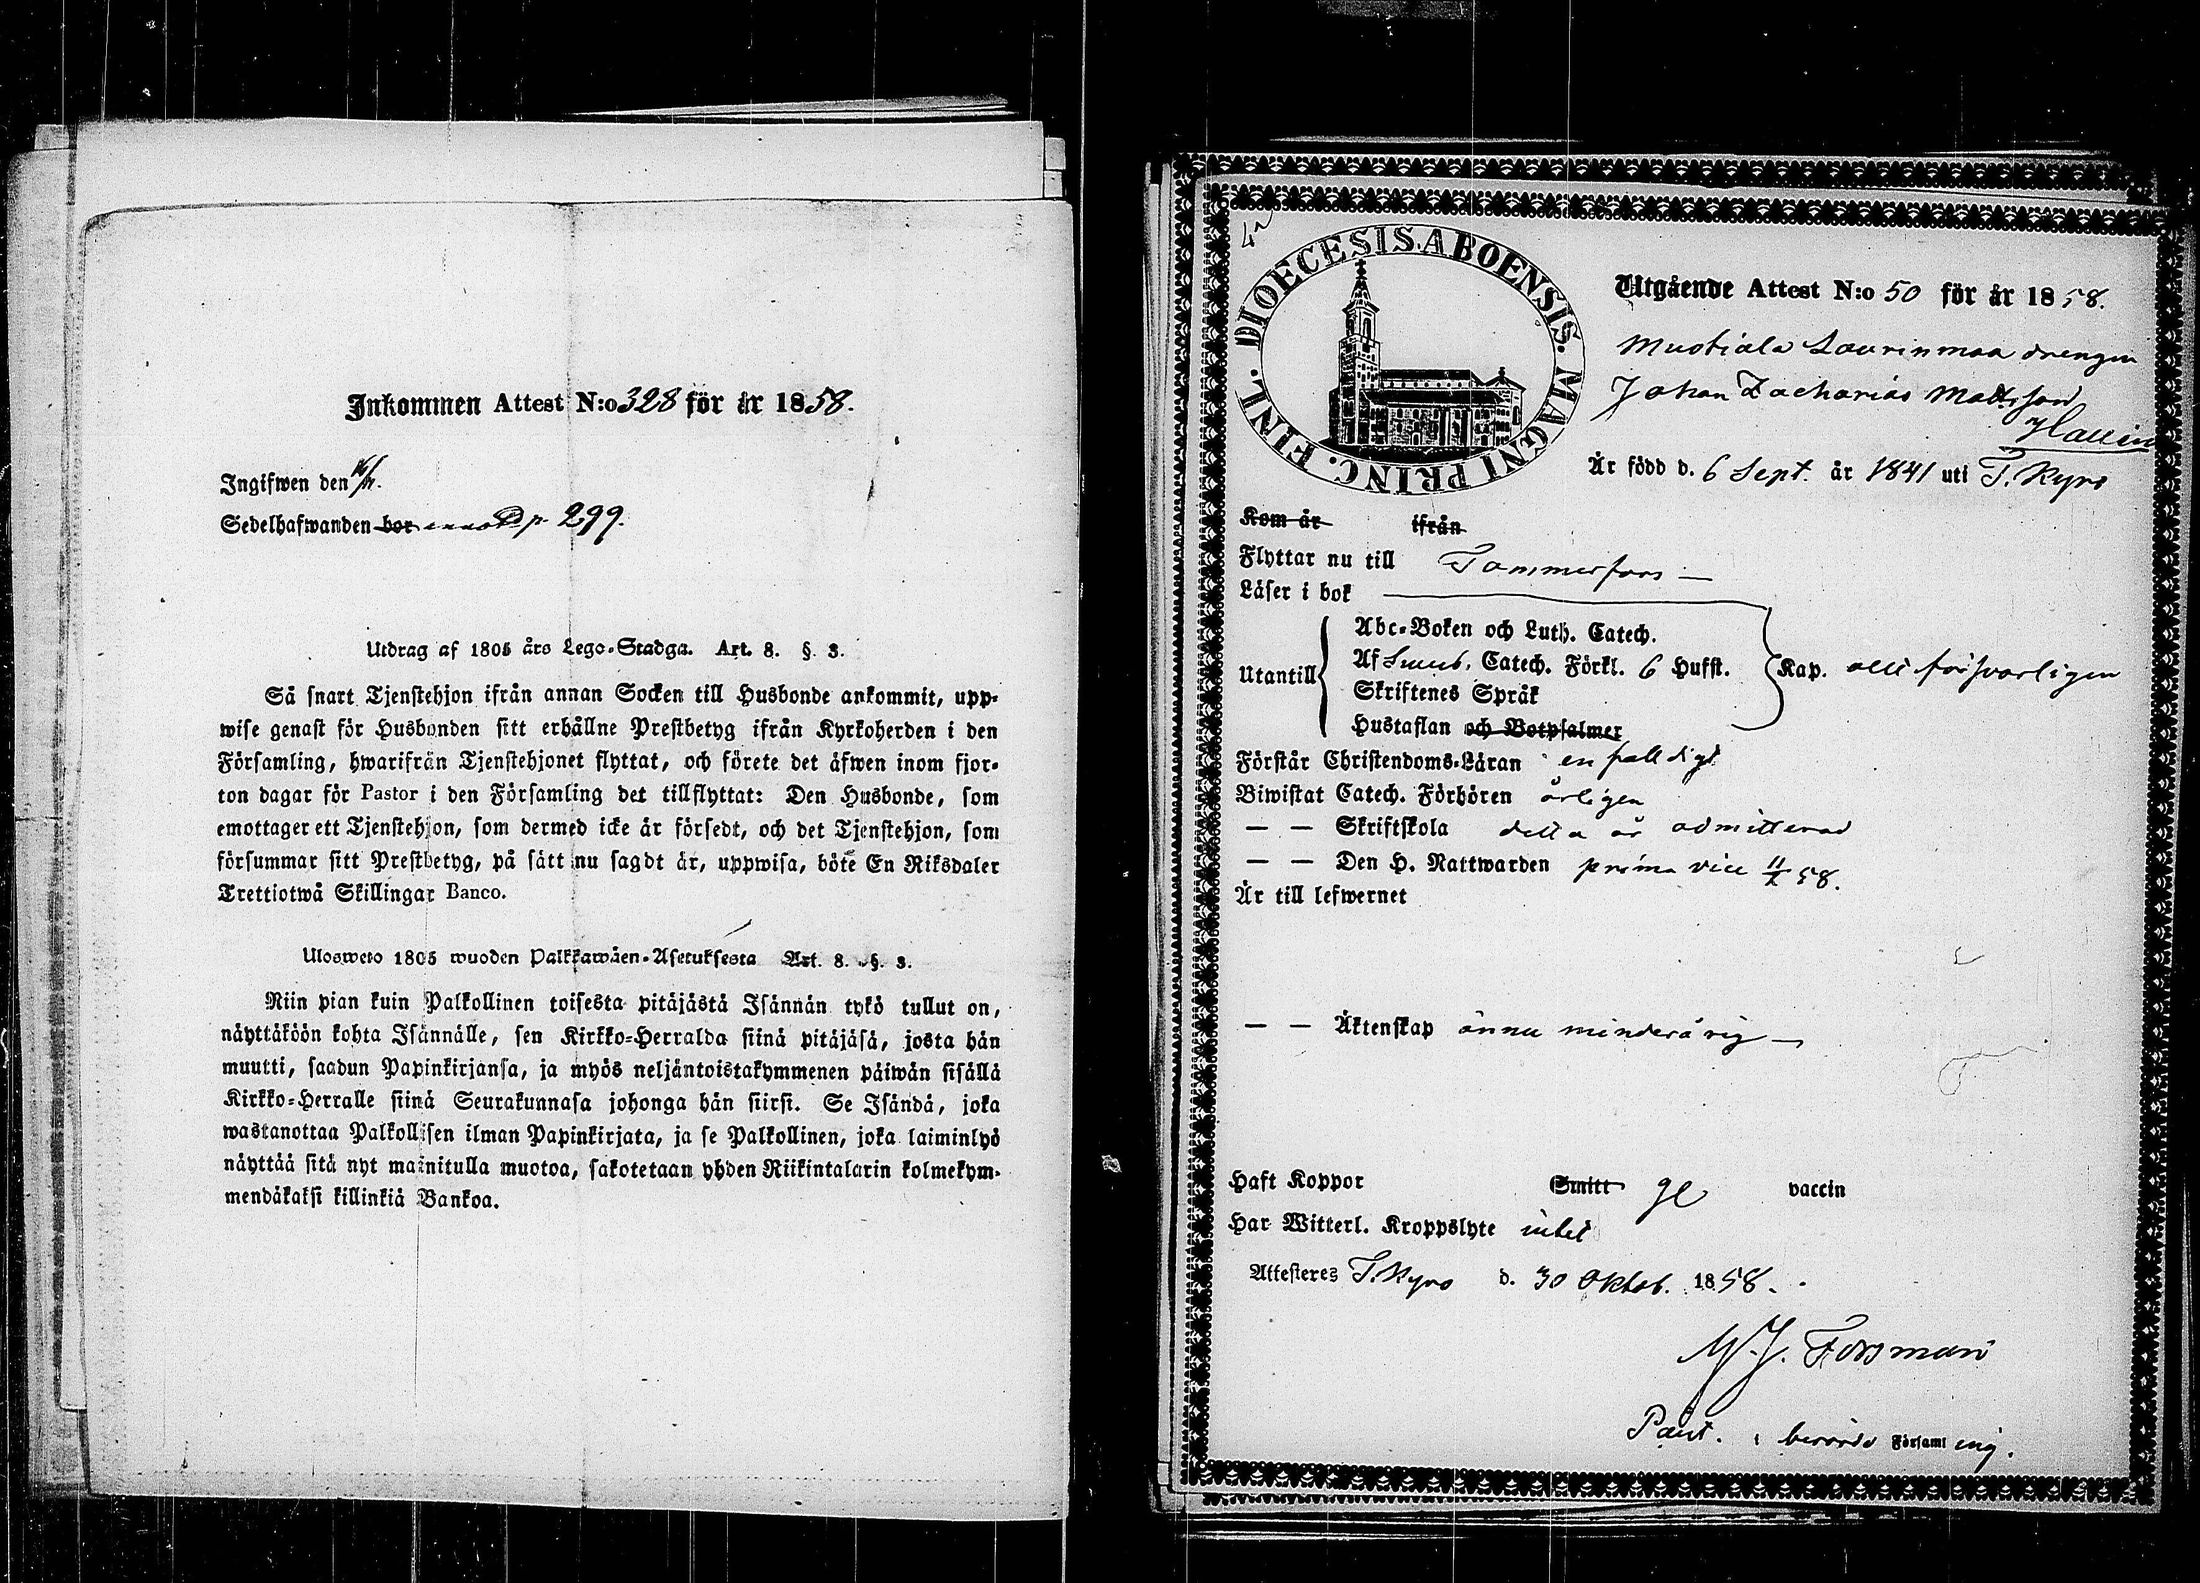 Inkommen Attest N:o 328 för år 1858.
Ingifwen den
Sedelhafwanden bor p 299.
Utdrag af 1805 års Lego-Stadga. Art. 8. §. 3.
Så snart Tjenstehjon ifrån annan Socken till Husbonde ankommit, upp-
wise genast för Husbonden sitt erhållne Prestbetyg ifrån Kyrkoherden i den
Församling, hwarifrån Tjenstehjonet flyttat, och förete det äfwen inom fjor-
ton dagar för Pastor i den Församling det tillflyttat: Den Husbonde, som
emottager ett Tjenstehjon, som dermed icke är försedt, och det Tjenstehjon, som
försummar sitt Prestbetyg, på sätt nu sagdt är, uppwisa, böte En Riksdaler
Trettiotwå Skillingar Banco.
Ulosweto 1805 wuoden Palkkawäen-Asetuksesta Art. 8. §. 3.
Niin pian kuin Palkollinen toisesta pitäjästä Isännän tykö tullut on,
näyttäköön kohta Isännälle, sen Kirkko-Herralda siinä pitäjäsä, josta hän
muutti, saadun Papinkirjansa, ja myös neljäntoistakymmenen päiwän sisällä
Kirkko-Herralle siinä Seurakunnasa johonga hän siirsi. Se Isändä, joka
wastanottaa Palkollisen ilman Papinkirjata, ja se Palkollinen, joka laiminlyö
näyttää sitä nyt mainitulla muotoa, sakotetaan yhden Riikintalarin kolmekym-
mendäkaksi killinkiä Bankoa.
DIOECESIS ABOENSIS. MAGNI PRINC. FINL.
Utgående Attest N:o 50 för år 1858.
Mustiala Laurinmaa drengen
Johan Zacharias Mattsson
Hallin
Är född d. 6 Sept. år 1841 uti T. Kyro
Kom år ifrån
Flyttar nu till Tammerfors —
Läser i bok
Abc-Boken och Luth. Catech.
Utantill Af Catech. Förkl. 6 Hufst. Kap. all försvarligen
Skriftenes Språk
Hustaflan och Botpsalmer
Förstår Christendoms-Läran enfalldigt
Biwistat Catech. Förhören årligen
— — Skriftskola detta år admitterad
— — Den H. Nattwarden prima vice 58.
Är till lefwernet
— — Äktenskap ännu minderårig —
Haft Koppor Smitt ge vaccin
Har Witterl. Kroppslyte intet
Attesteres T. Kyro d. 30 Oktob. 1858.
M. J. Forsman
Past. i berörde Församl ing.